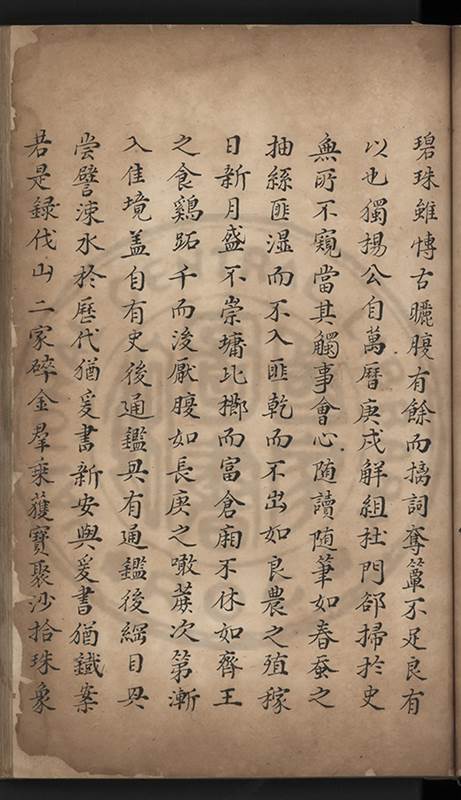 碧珠雖愽古曬腹有餘而摛詞奪簟不足良有
以也獨揚公自萬曆庚戌解組杜門郤掃於史
無所不窺當其觸事會心随讀随筆如春蚕之
抽絲匪濕而不入匪乾而不出如良農之殖稼
日新月盛不崇墉比櫛而富倉廂不休如齊王
之食鷄跖千而後厭腹如長庚之噉蔗次第漸
入佳境盖自有史後通鑑毋有通鑑後綱目毋
嘗譬涑水於歷代猶爰書新安與爰書猶鐡案
若是録伐山二家碎金羣乘獲寳聚沙拾珠象